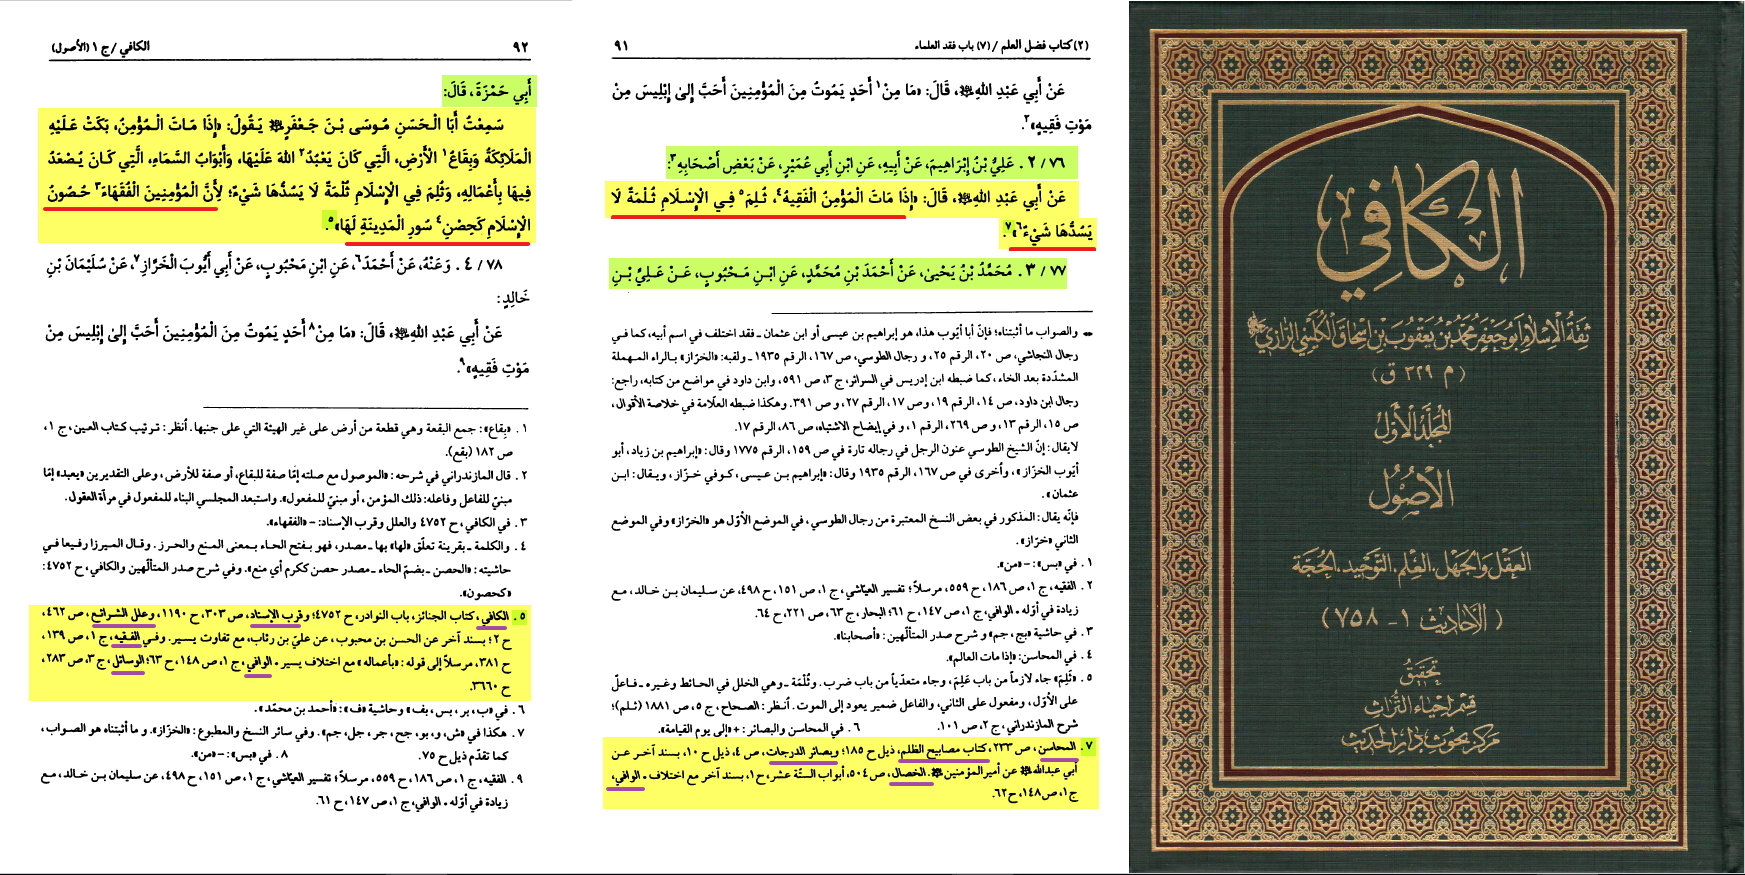 الكافي
ثقة الإسلام أبو جعفر محمد بن يعقوب بن إسحاق الكليني الرازي
(م ٣٢٩ ق)
المجلد الأول
الأصول
العقل والجهل، العلم، التوحيد، الحجة
(الأحاديث ١ - ٧٥٨)
تحقيق
قسم إحياء التراث
مركز بحوث دار الحديث
(٢) كتاب فضل العلم / (٧) باب فقد العلماء ٩١
عَنْ أَبِي عَبْدِ اللهِ ﷷ، قَالَ: «مَا مِنْ١ أَحَدٍ يَمُوتُ مِنَ الْمُؤْمِنِينَ أَحَبَّ إِلىٰ إِبْلِيسَ مِنْ
مَوْتِ فَقِيهٍ»٢.
٧٦ / ٢ . عَلِيُّ بْنُ إِبْرَاهِيمَ، عَنْ أَبِيهِ، عَنِ ابْنِ أَبِي عُمَيْرٍ، عَنْ بَعْضِ أَصْحَابِهِ٣:
عَنْ أَبِي عَبْدِ اللهِ ﷷ، قَالَ: «إِذَا مَاتَ الْمُؤْمِنُ الْفَقِيهُ٤، ثُلِمَ٥ فِي الْإِسْلَامِ ثُلْمَةٌ لَا
يَسُدُّهَا شَيْءٌ٦»٧.
٧٧ / ٣ . مُحَمَّدُ بْنُ يَحْيىٰ، عَنْ أَحْمَدَ بْنِ مُحَمَّدٍ، عَنِ ابْنِ مَحْبُوبٍ، عَنْ عَلِيِّ بْنِ
والصواب ما أثبتناه؛ فإنّ أبا أيّوب هذا، هو إبراهيم بن عيسى أو ابن عثمان ـ فقد اختلف في اسم أبيه، كما في
رجال النجاشي، ص ٢٠، الرقم ٢٥، و رجال الطوسي، ص ١٦٧، الرقم ١٩٣٥ ـ ولقبه: «الخرّاز» بالراء المهملة
المشدّدة بعد الخاء، كما ضبطه ابن إدريس في السرائر، ج ٣، ص ٥٩١، وابن داود في مواضع من كتابه، راجع:
رجال ابن داود، ص ١٤، الرقم ١٩، و ص ١٧، الرقم ٢٧، و ص ٣٩١. وهكذا ضبطه العلّامة في خلاصة الأقوال،
ص ١٥، الرقم ١٣، و ص ٢٦٩، الرقم ١، و في إيضاح الاشتباه، ص ٨٦، الرقم ١٧.
لايقال: إنّ الشيخ الطوسي عنون الرجل في رجاله تارة في ص ١٥٩، الرقم ١٧٧٥ وقال: «إبراهيم بن زياد، أبو
أيّوب الخزّاز»، وأخرى في ص ١٦٧، الرقم ١٩٣٥ وقال: «إبراهيم بن عيسى، كوفي خزّاز، ويقال: ابن
عثمان».
فإنّه يقال: المذكور في بعض النسخ المعتبرة من رجال الطوسي، في الموضع الأوّل هو «الخرّاز» وفي الموضع
الثاني «خرّاز».
١ . في «بس»: ـ «من».
٢ . الفقيه، ج ١، ص ١٨٦، ح ٥٥٩، مرسلاً؛ تفسير العيّاشي، ج ١، ص ١٥١، ح ٤٩٨، عن سليمان بن خالد، مع
زيادة في أوّله ٠ الوافي، ج ١، ص ١٤٧، ح ٦١؛ البحار، ج ٦٣، ص ٢٢١، ح ٦٤.
٣ . في حاشية «بج، جم» و شرح صدر المتألّهين: «أصحابنا».
٤ . في المحاسن: «إذا مات العالم».
٥ . «ثَلِمَ» جاء لازماً من باب عَلِمَ، وجاء متعدّياً من باب ضرب. وثُلْمَة ـ وهي الخلل في الحائط وغيره ـ فاعلٌ
على الأوّل، ومفعول على الثاني، والفاعل ضمير يعود إلى الموت. أُنظر: الصحاح، ج ٥، ص ١٨٨١ (ثلم)؛
شرح المازندراني، ج ٢، ص ١٠١. ٦ . في المحاسن والبصائر: + «إلى يوم القيامة».
٧ . المحاسن، ص ٢٣٣، كتاب مصابيح الظلم، ذيل ح ١٨٥؛ وبصائر الدرجات، ص ٤، ذيل ح ١٠، بسند آخر عن
أبي عبدالله ﷷ عن أمير المؤمنين ﷷ. الخصال، ص ٥٠٤، أبواب الستّة عشر، ح ١، بسند آخر مع اختلاف ٠ الوافي،
ج ١، ص ١٤٨، ح ٦٢.
٩٢ الكافي / ج ١ (الأصول)
أَبِي حَمْزَةَ، قَالَ:
سَمِعْتُ أَبَا الْحَسَنِ مُوسَى بْنَ جَعْفَرٍ ﷷ يَقُولُ: «إِذَا مَاتَ الْمُؤْمِنُ، بَكَتْ عَلَيْهِ
الْمَلَائِكَةُ وَبِقَاعُ١ الْأَرْضِ، الَّتِي كَانَ يَعْبُدُ٢ اللهَ عَلَيْهَا، وَأَبْوَابُ السَّمَاءِ، الَّتِي كَانَ يُصْعَدُ
فِيهَا بِأَعْمَالِهِ، وَثُلِمَ فِي الْإِسْلَامِ ثُلْمَةٌ لَا يَسُدُّهَا شَيْءٌ؛ لِأَنَّ الْمُؤْمِنِينَ الْفُقَهَاءَ٣ حُصُونُ
الْإِسْلَامِ كَحِصْنِ٤ سُورِ الْمَدِينَةِ لَهَا»٥.
٧٨ / ٤ . وَعَنْهُ، عَنْ أَحْمَدَ٦، عَنِ ابْنِ مَحْبُوبٍ، عَنْ أَبِي أَيُّوبَ الْخَرَّازِ٧، عَنْ سُلَيْمَانَ بْنِ
خَالِدٍ:
عَنْ أَبِي عَبْدِ اللهِ ﷷ، قَالَ: «مَا مِنْ٨ أَحَدٍ يَمُوتُ مِنَ الْمُؤْمِنِينَ أَحَبَّ إِلىٰ إِبْلِيسَ مِنْ
مَوْتِ فَقِيهٍ»٩.
١ . «بِقاع»: جمع البقعة وهي قطعة من أرض على غير الهيئة التي على جنبها. أُنظر: ترتيب كتاب العين، ج ١،
ص ١٨٢ (بقع).
٢ . قال المازندراني في شرحه: «الموصول مع صلته إمّا صفة للبقاع، أو صفة للأرض، وعلى التقديرين «يعبد» إمّا
مبنيّ للفاعل وفاعله: ذلك المؤمن، أو مبنيّ للمفعول». واستبعد المجلسي البناء للمفعول في مرآة العقول.
٣ . في الكافي، ح ٤٧٥٢ والعلل وقرب الإسناد: ـ «الفقهاء».
٤ . والكلمة ـ بقرينة تعلّق «لها» بها ـ مصدر، فهو بفتح الحاء بمعنى المنع والحرز. وقال الميرزا رفيعا في
حاشيته: «الحصن ـ بضمّ الحاء ـ مصدر حصن ككرم أي منع». وفي شرح صدر المتألّهين والكافي، ح ٤٧٥٢:
«كحصون».
٥ . الكافي، كتاب الجنائز، باب النوادر، ح ٤٧٥٢؛ وقرب الإسناد، ص ٣٠٣، ح ١١٩٠؛ وعلل الشرائع، ص ٤٦٢،
ح ٢؛ بسند آخر عن الحسن بن محبوب، عن عليّ بن رئاب، مع تفاوت يسير. وفي الفقيه، ج ١، ص ١٣٩،
ح ٣٨١، مرسلاً إلى قوله: «بأعماله» مع اختلاف يسير ٠ الوافي، ج ١، ص ١٤٨، ح ٦٣؛ الوسائل، ج ٣، ص ٢٨٣،
ح ٣٦٦٠.
٦ . في «ب، بر، بس، بف» وحاشية «ف»: «أحمد بن محمّد».
٧ . هكذا في «ش، و، بو، جح، جر، جل، جم». وفي سائر النسخ والمطبوع: «الخزّاز». و ما أثبتناه هو الصواب،
كما تقدّم ذيل ح ٧٥. ٨ . في «بس»: ـ «من».
٩ . الفقيه، ج ١، ص ١٨٦، ح ٥٥٩، مرسلاً؛ تفسير العيّاشي، ج ١، ص ١٥١، ح ٤٩٨، عن سليمان بن خالد، مع
زيادة في أوّله ٠ الوافي، ج ١، ص ١٤٧، ح ٦١.